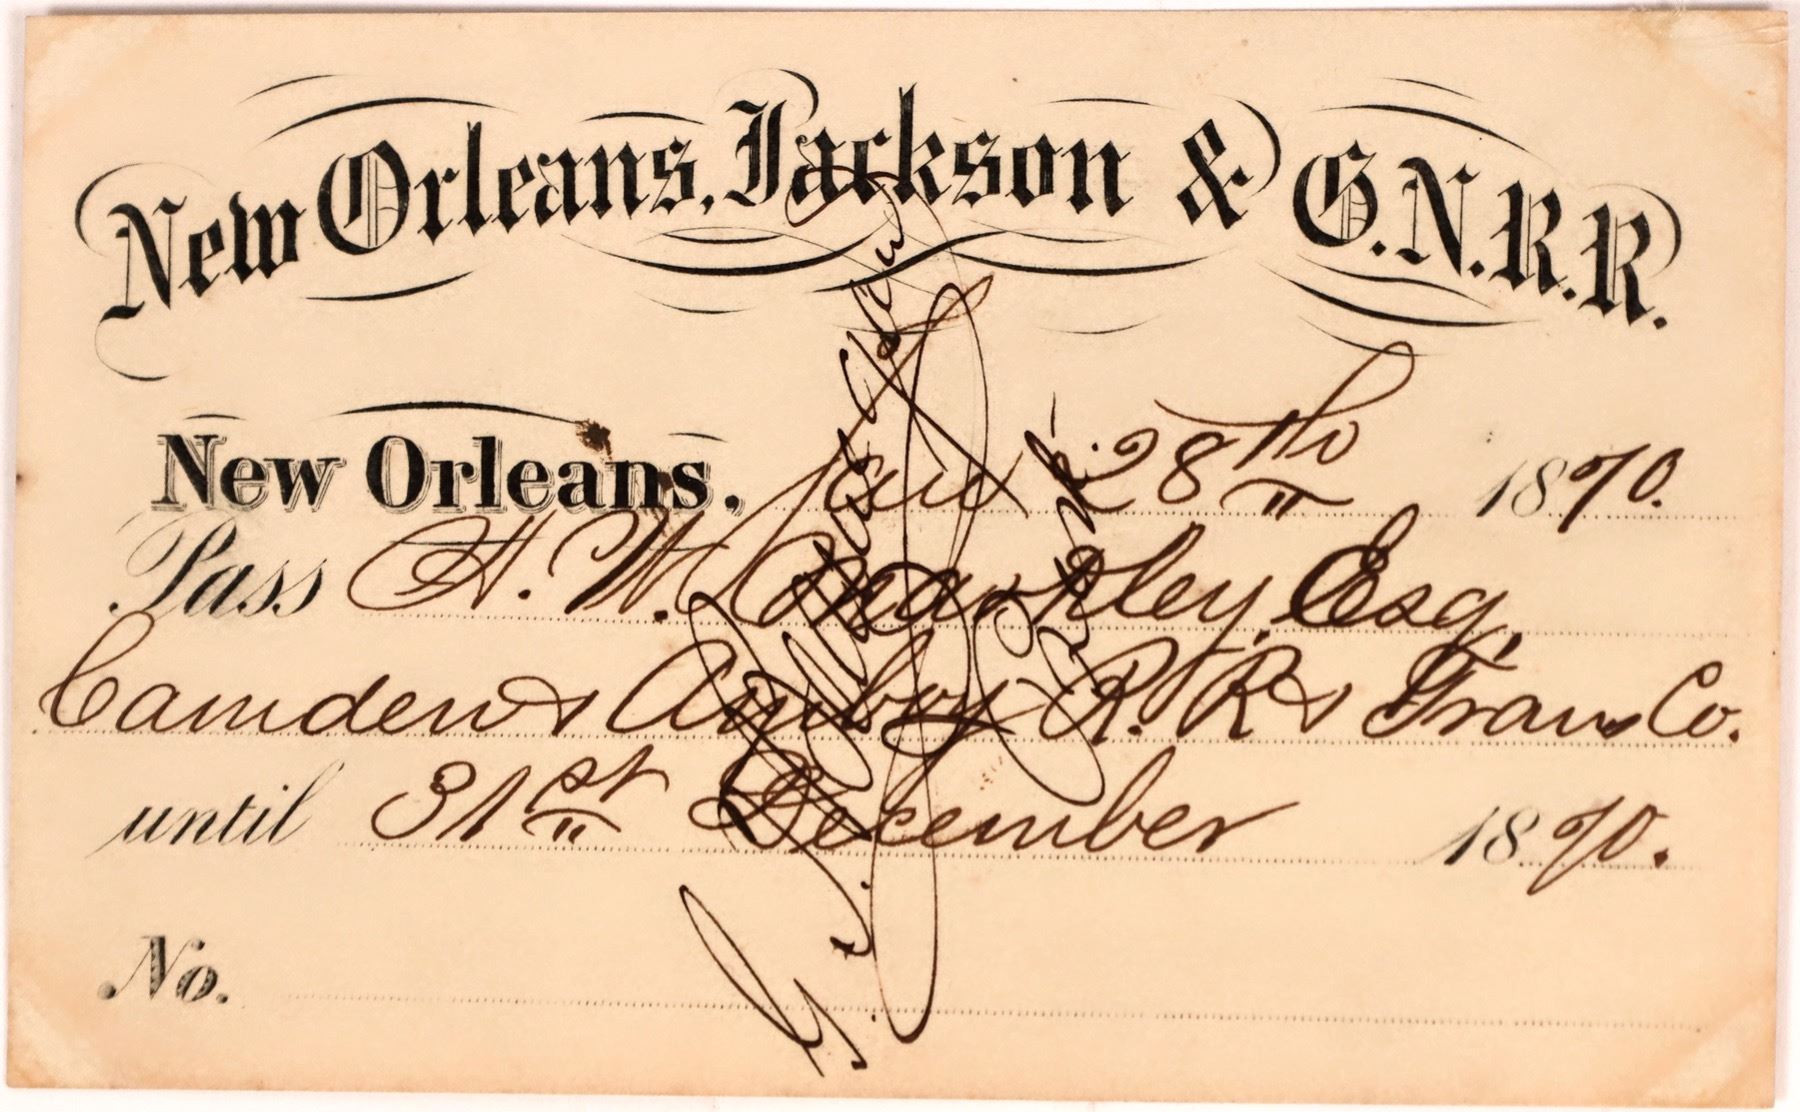 New Orleans, Jackson & G.N.R.R.
New Orleans. Jany 28th 1870.
Pass H. W. Gwankley, Esq.
Camden & Amboy R. R & Trans Co.
until 31st December 1870.
No.